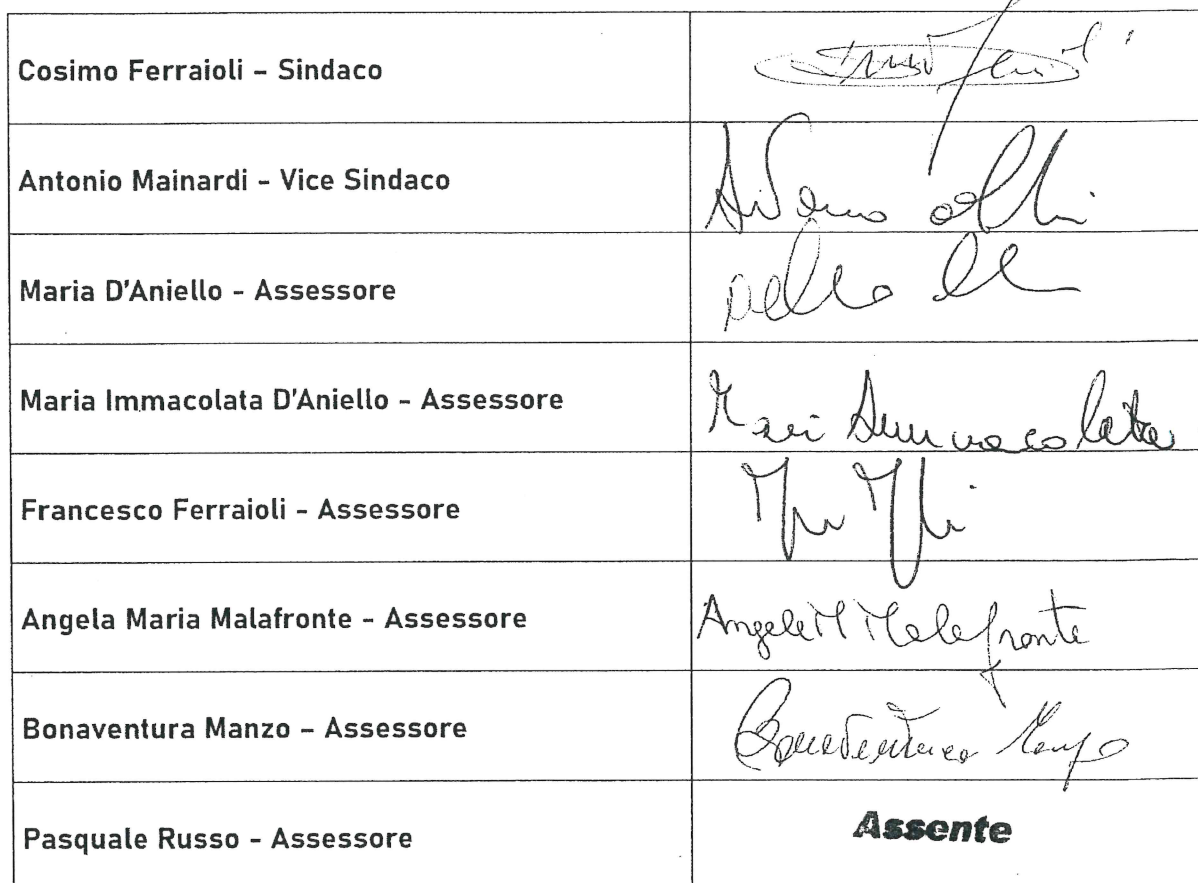 Cosimo Ferraioli – Sindaco
Antonio Mainardi – Vice Sindaco
Maria D'Aniello - Assessore
Maria Immacolata D'Aniello - Assessore
Maria Immacolata
Francesco Ferraioli - Assessore
Angela Maria Malafronte - Assessore
Angela M Malafronte
Bonaventura Manzo – Assessore
Bonaventura Manzo
Pasquale Russo - Assessore
Assente